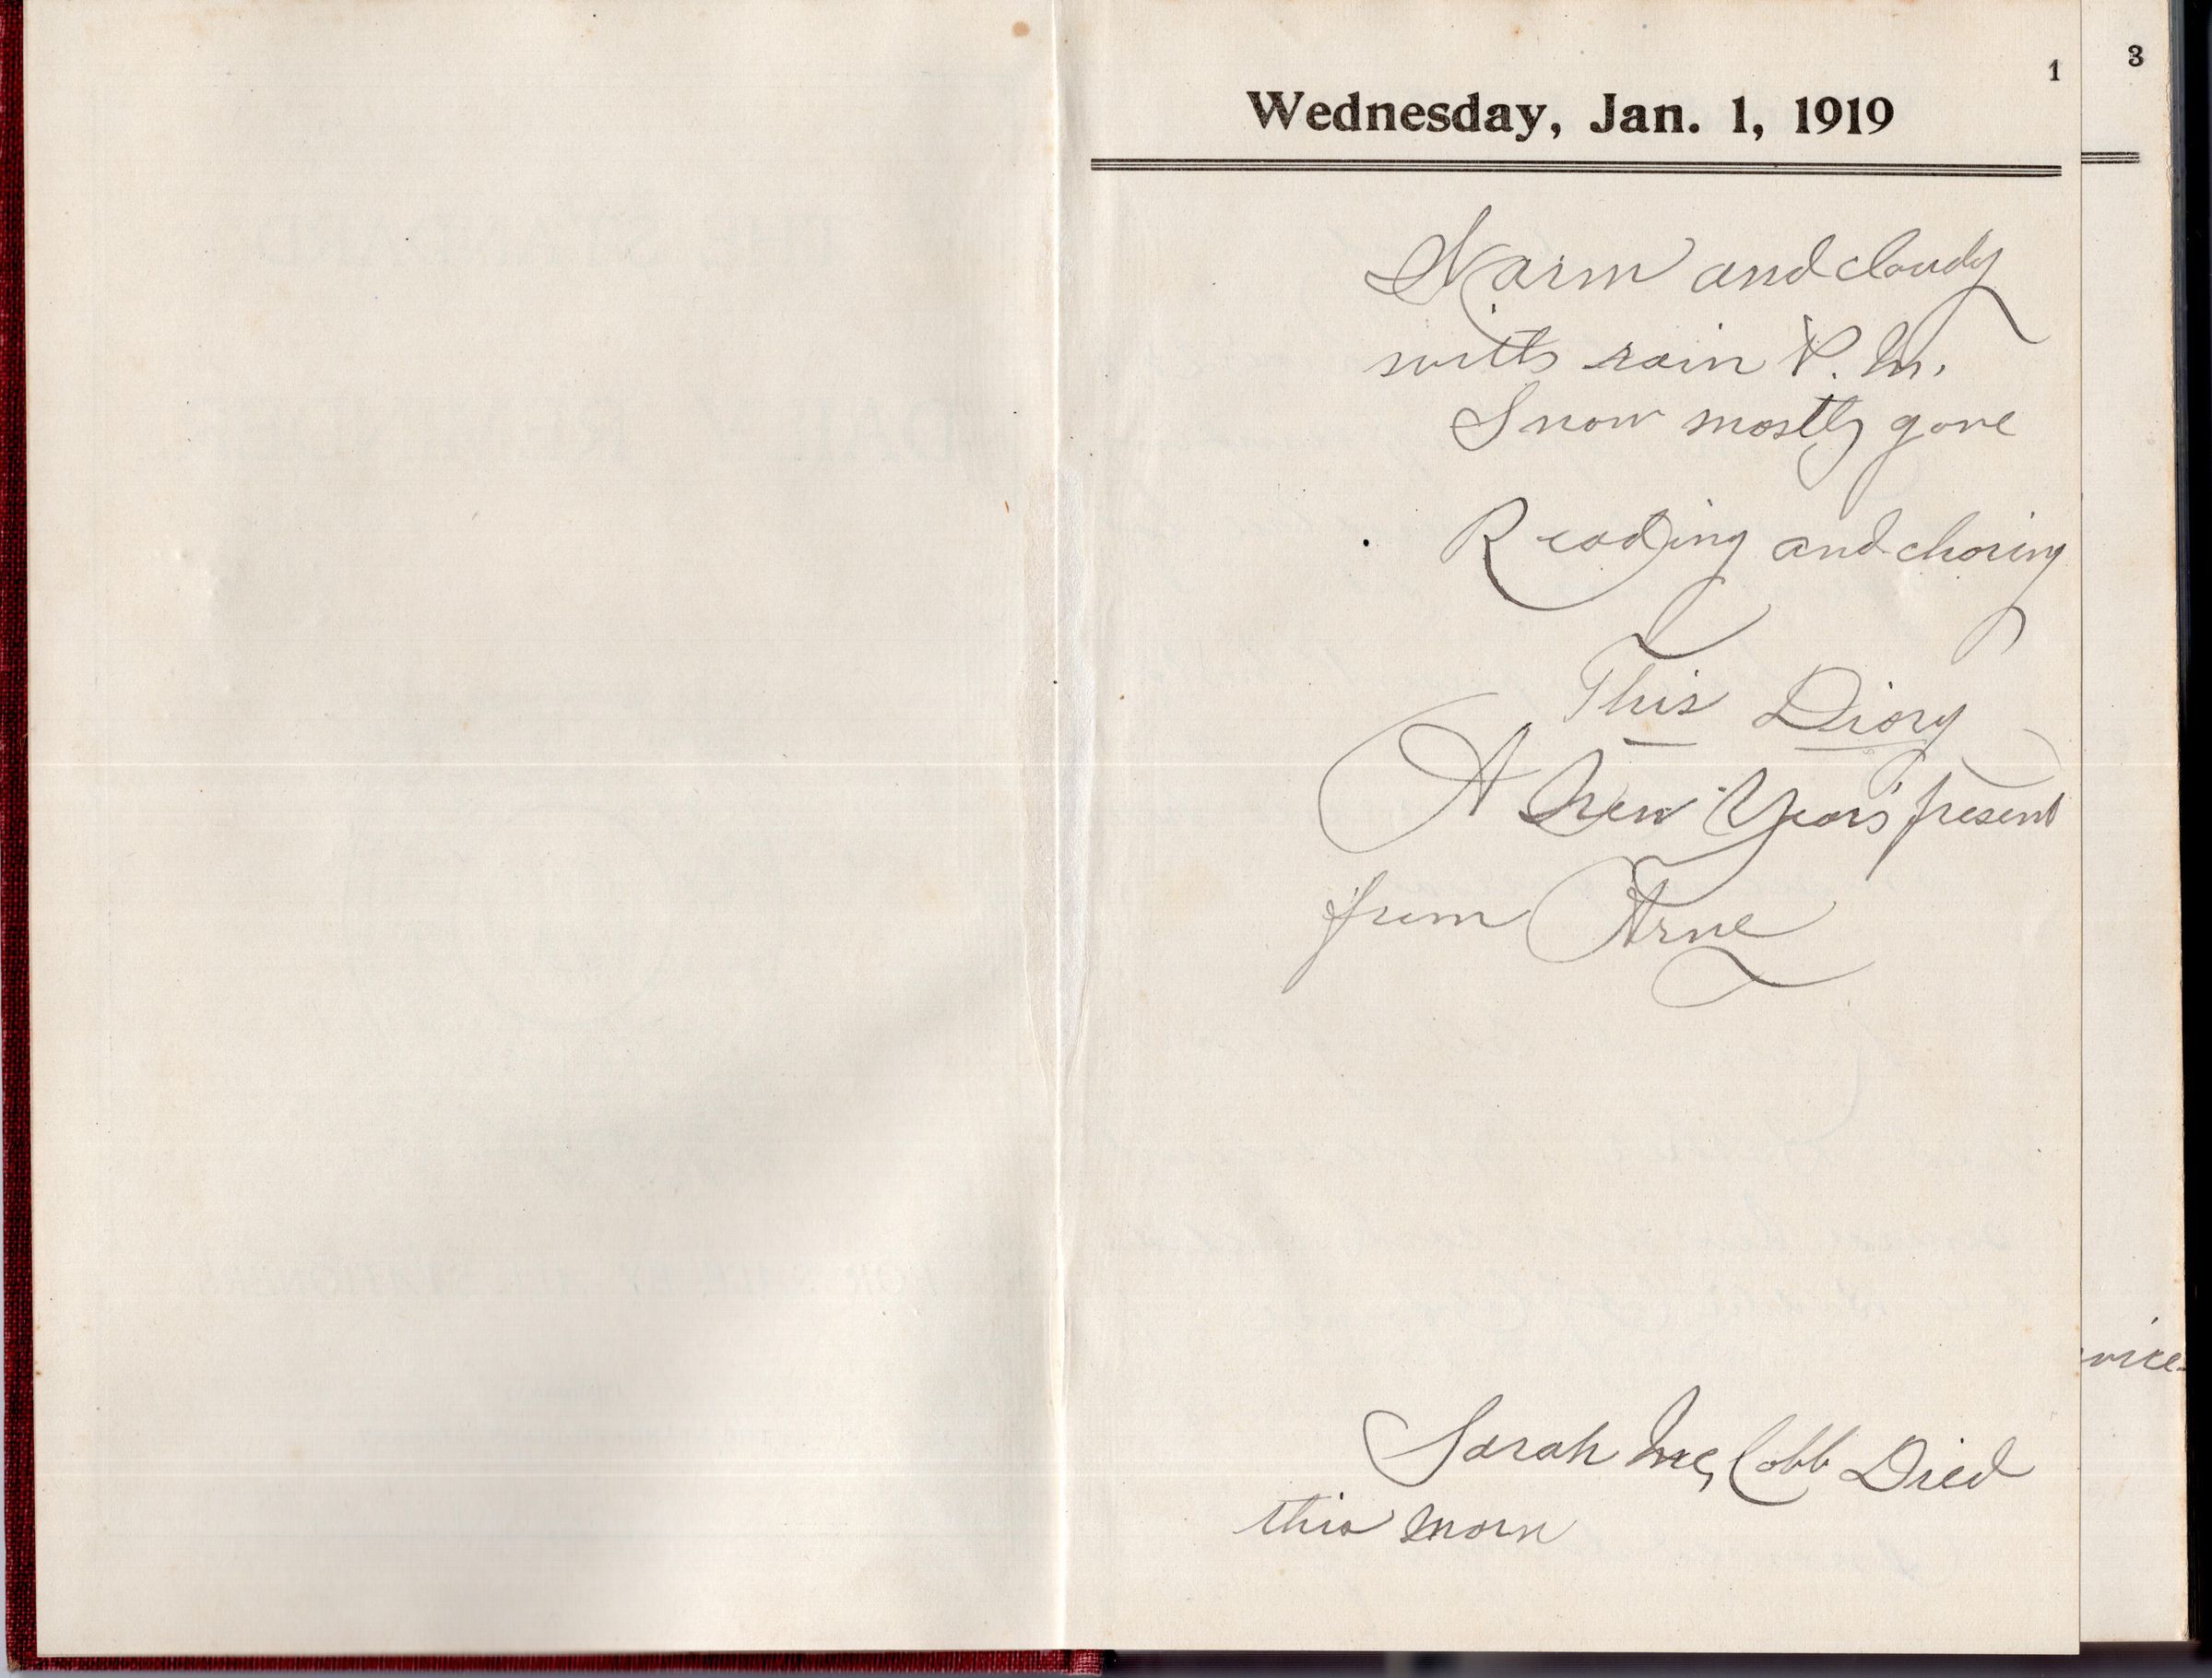 1
3
Wednesday, Jan. 1, 1919
Warm and cloudy
with rain P.M.
Snow mostly gone
Reading and choring
This Diary
A New Years' present
from Arne
vice
Sarah McCobb Died
this morn